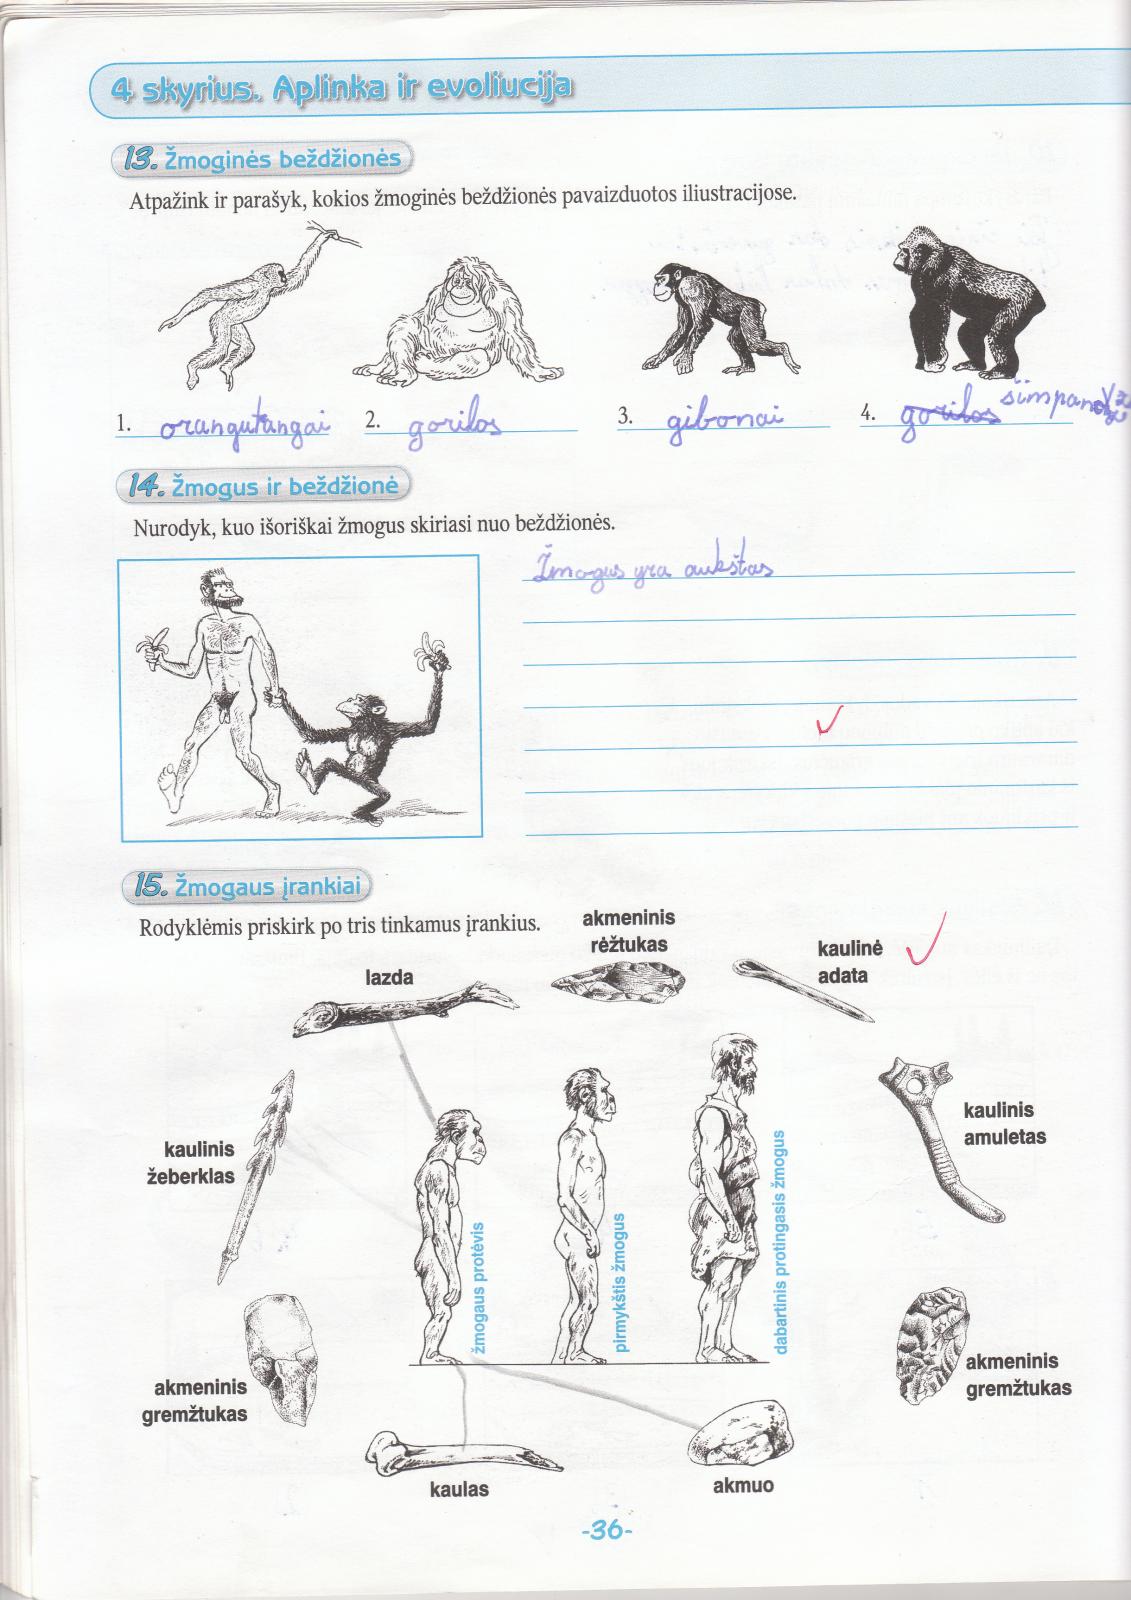 4 skyrius. Aplinka ir evoliucija
13. Žmoginės beždžionės
Atpažink ir parašyk, kokios žmoginės beždžionės pavaizduotos iliustracijose.
1. orangutangai 2. gorilos 3. gibonai 4. gorilos šimpan
14. Žmogus ir beždžionė
Nurodyk, kuo išoriškai žmogus skiriasi nuo beždžionės.
Žmogus yra aukštas
15. Žmogaus įrankiai
Rodyklėmis priskirk po tris tinkamus įrankius.
akmeninis
rėžtukas
kaulinė
adata
lazda
kaulinis
amuletas
kaulinis
žeberklas
žmogaus protėvis
pirmykštis žmogus
dabartinis protingasis žmogus
akmeninis
gremžtukas
akmeninis
gremžtukas
kaulas
akmuo
-36-